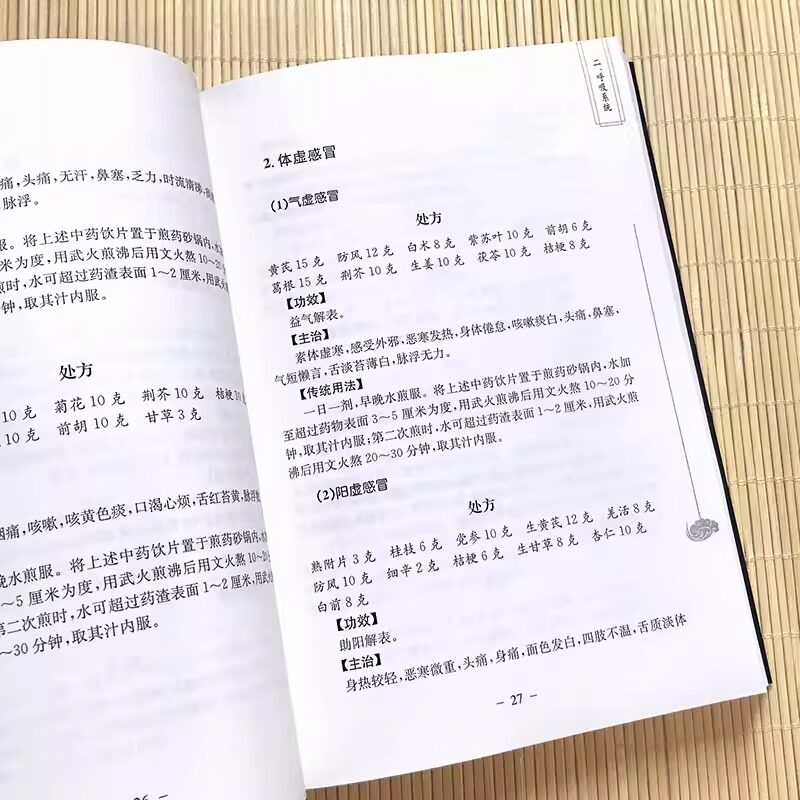 痛,头痛,无汗,鼻塞,乏力,时流清涕,
脉浮。
服。将上述中药饮片置于煎药砂锅内,水
米为度,用武火煎沸后用文火熬10~20
煎时,水可超过药渣表面1~2厘米,用武
钟,取其汁内服。
处方
10克 菊花10克 荆芥10克 桔梗10
10克 前胡10克 甘草3克
咽痛,咳嗽,咳黄色痰,口渴心烦,舌红苔黄,脉浮
晚水煎服。将上述中药饮片置于煎药砂锅内,
~5厘米为度,用武火煎沸后用文火熬10~20
第二次煎时,水可超过药渣表面1~2厘米,用武
~30分钟,取其汁内服。
26 —
二、呼吸系统
2.体虚感冒
(1)气虚感冒
处方
黄芪15克 防风12克 白术8克 紫苏叶10克 前胡6克
葛根15克 荆芥10克 生姜10克 茯苓10克 桔梗8克
【功效】
益气解表。
【主治】
素体虚寒,感受外邪,恶寒发热,身体倦怠,咳嗽痰白,头痛,鼻塞,
气短懒言,舌淡苔薄白,脉浮无力。
【传统用法】
一日一剂,早晚水煎服。将上述中药饮片置于煎药砂锅内,水加
至超过药物表面3~5厘米为度,用武火煎沸后用文火熬10~20分
钟,取其汁内服;第二次煎时,水可超过药渣表面1~2厘米,用武火煎
沸后用文火熬20~30分钟,取其汁内服。
(2)阳虚感冒
处方
熟附片3克 桂枝6克 党参10克 生黄芪12克 羌活8克
防风10克 细辛2克 桔梗6克 生甘草8克 杏仁10克
白前8克
【功效】
助阳解表。
【主治】
身热较轻,恶寒微重,头痛,身痛,面色发白,四肢不温,舌质淡体
— 27 —